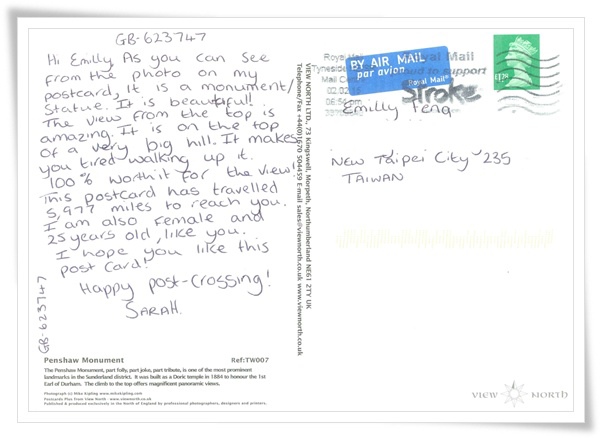 GB-623747
Hi Emilly As you can see
from the photo on my
postcard, it is a monument/
statue. It is beautiful!
The view from the top is
amazing. It is on the top
of a very big hill. It makes
you tired walking up it.
100% worth it for the view!
This postcard has travelled
5,977 miles to reach you.
I am also female and
25 years old, like you.
I hope you like this
post card!
Happy post-crossing!
SARAH.
GB-623747
Penshaw Monument Ref:TW007
The monument, part folly, part joke, part tribute, is one of the most prominent
landmarks in the Sunderland district. It was built as a Doric temple in 1884 to honour the 1st
Earl of Durham. The climb to the top offers magnificent panoramic views.
Photograph (c) Mike Kipling www.mikekipling.com
Postcards Plus from View North - www.viewnorth.co.uk
Published & produced exclusively in the North of England by professional photographers, designers and printers.
VIEW NORTH LTD, 73 Kingswell, Morpeth, Northumberland NE61 2TY UK
Telephone/Fax +44(0)1670 504459 E-mail sales@viewnorth.co.uk www.viewnorth.co.uk
Royal Mail
Tyneside
Mail Centre
02.02
BY AIR MAIL
par avion
Royal Mail
Royal Mail
to support
Stroke
Emilly Teng
New Taipei City 235
TAIWAN
VIEW NORTH